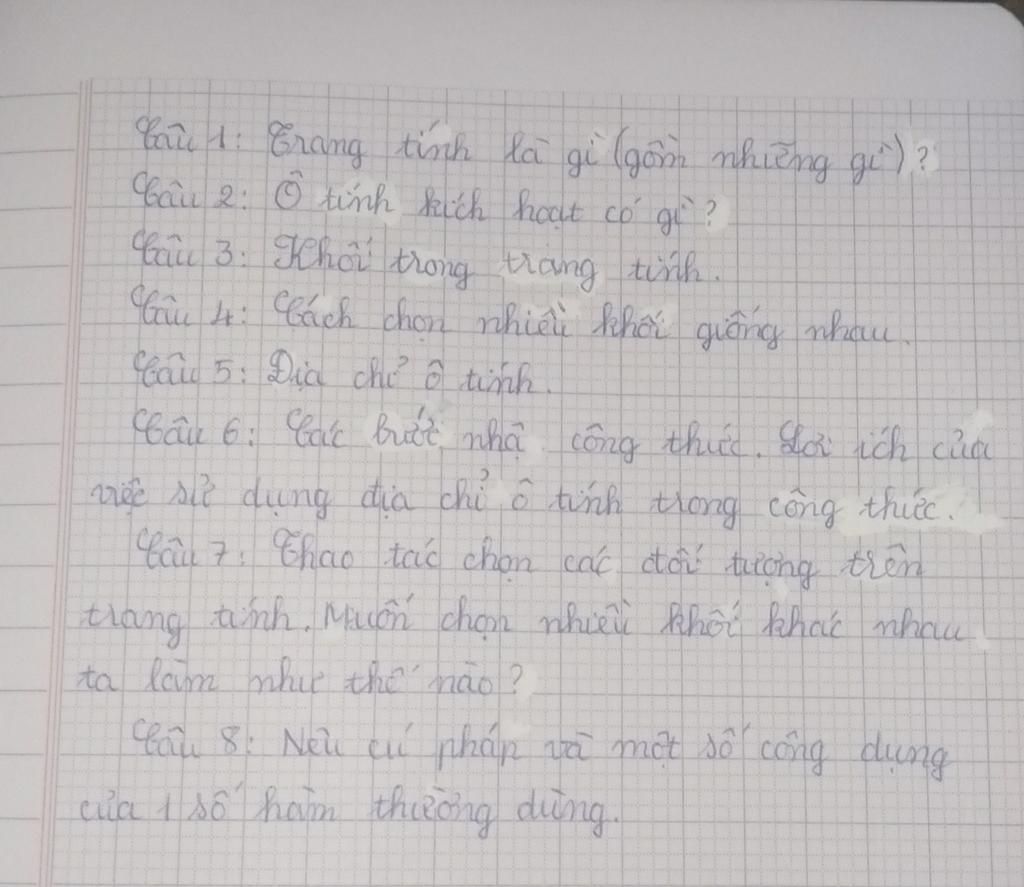 Câu 1: Trang tính là gì (gồm những gì)?
Câu 2: Ô tính kích hoạt có gì?
Câu 3: Khối trong trang tính.
Câu 4: Cách chọn nhiều khối giống nhau.
Câu 5: Địa chỉ ô tính.
Câu 6: Các bước nhậ công thức. Lợi ích của
việc sử dụng địa chỉ ô tính trong công thức.
Câu 7: Thao tác chọn các đối tượng trên
trang tính. Muốn chọn nhiều khối khác nhau
ta làm như thế nào?
Câu 8: Nêu cú pháp và một số công dụng
của 1 số hàm thường dùng.